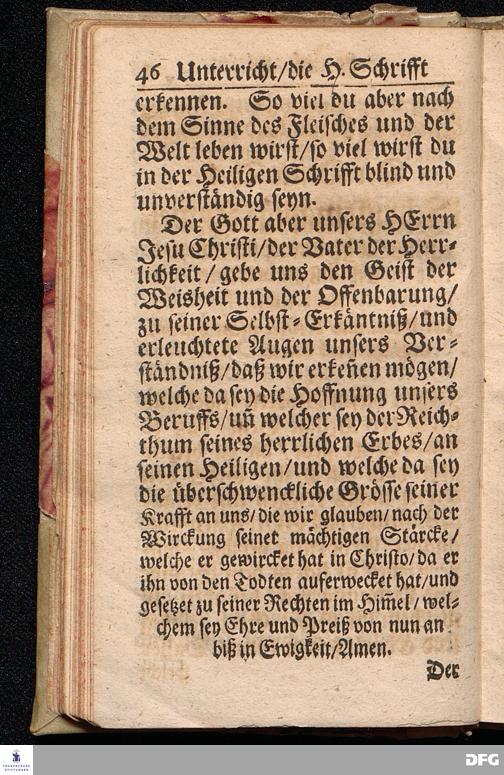 46 Unterricht/die H. Schrifft
erkennen. So viel du aber nach
dem Sinne des Fleisches und der
Welt leben wirst/so viel wirst du
in der Heiligen Schrifft blind und
unverständig seyn.
Der Gott aber unsers HErrn
Jesu Christi/der Vater der Herr-
lichkeit/gebe uns den Geist der
Weisheit und der Offenbarung/
zu seiner Selbst-Erkäntniß/und
erleuchtete Augen unsers Ver-
ständniß/daß wir erkeñen mögen/
welche da sey die Hoffnung unsers
Beruffs/uñ welcher sey der Reich-
thum seines herrlichen Erbes/an
seinen Heiligen/und welche da sey
die überschwenckliche Grösse seiner
Krafft an uns/die wir glauben/nach der
Wirckung seinet mächtigen Stärcke/
welche er gewircket hat in Christo/da er
ihn von den Todten auferwecket hat/und
gesetzet zu seiner Rechten im Him̃el/wel-
chem sey Ehre und Preiß von nun an
biß in Ewigkeit/Amen.
Der
FRANCKESCHE
STIFTUNGEN
DFG